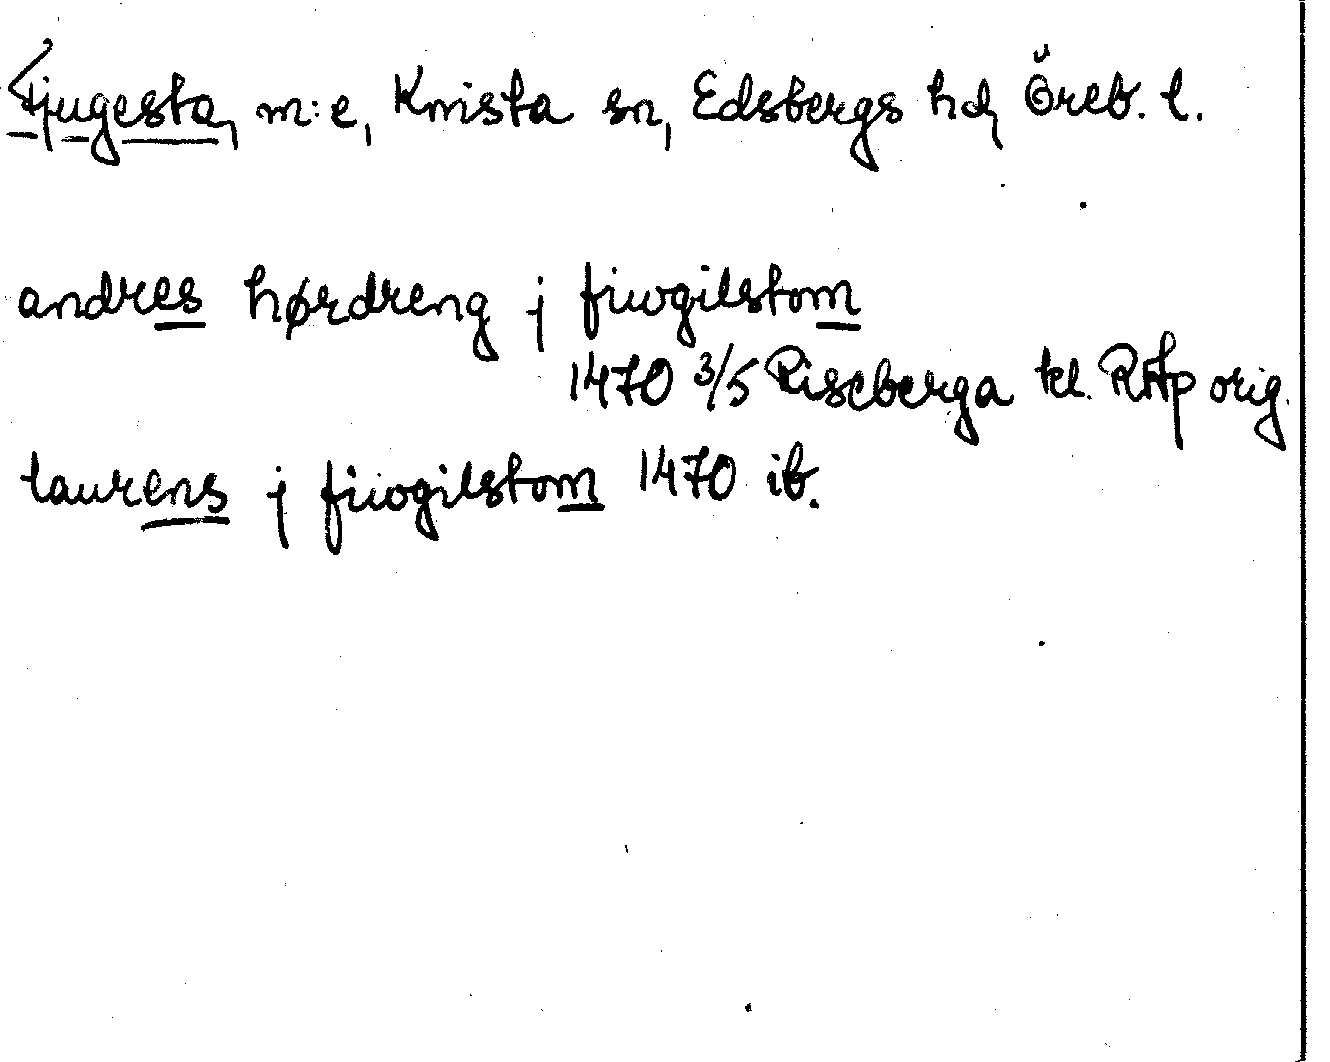 Fjugesta, m:e, Knista sn, Edsbergs hd, Öreb. l.
andres hørdreng j fiwgilstom
1470 3/5 Riseberga kl. RAp orig.
laurens j fiwgilstom 1470 ib.